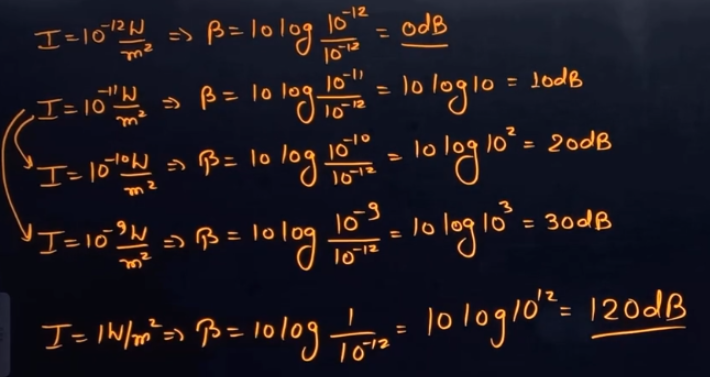 I = 10⁻¹² W/m² ⇒ β = 10 log 10⁻¹²/10⁻¹² = 0dB
I = 10⁻¹¹ W/m² ⇒ β = 10 log 10⁻¹¹/10⁻¹² = 10 log 10 = 10dB
I = 10⁻¹⁰ W/m² ⇒ β = 10 log 10⁻¹⁰/10⁻¹² = 10 log 10² = 20dB
I = 10⁻⁹ W/m² ⇒ β = 10 log 10⁻⁹/10⁻¹² = 10 log 10³ = 30dB
I = 1W/m² ⇒ β = 10 log 1/10⁻¹² = 10 log 10¹² = 120dB